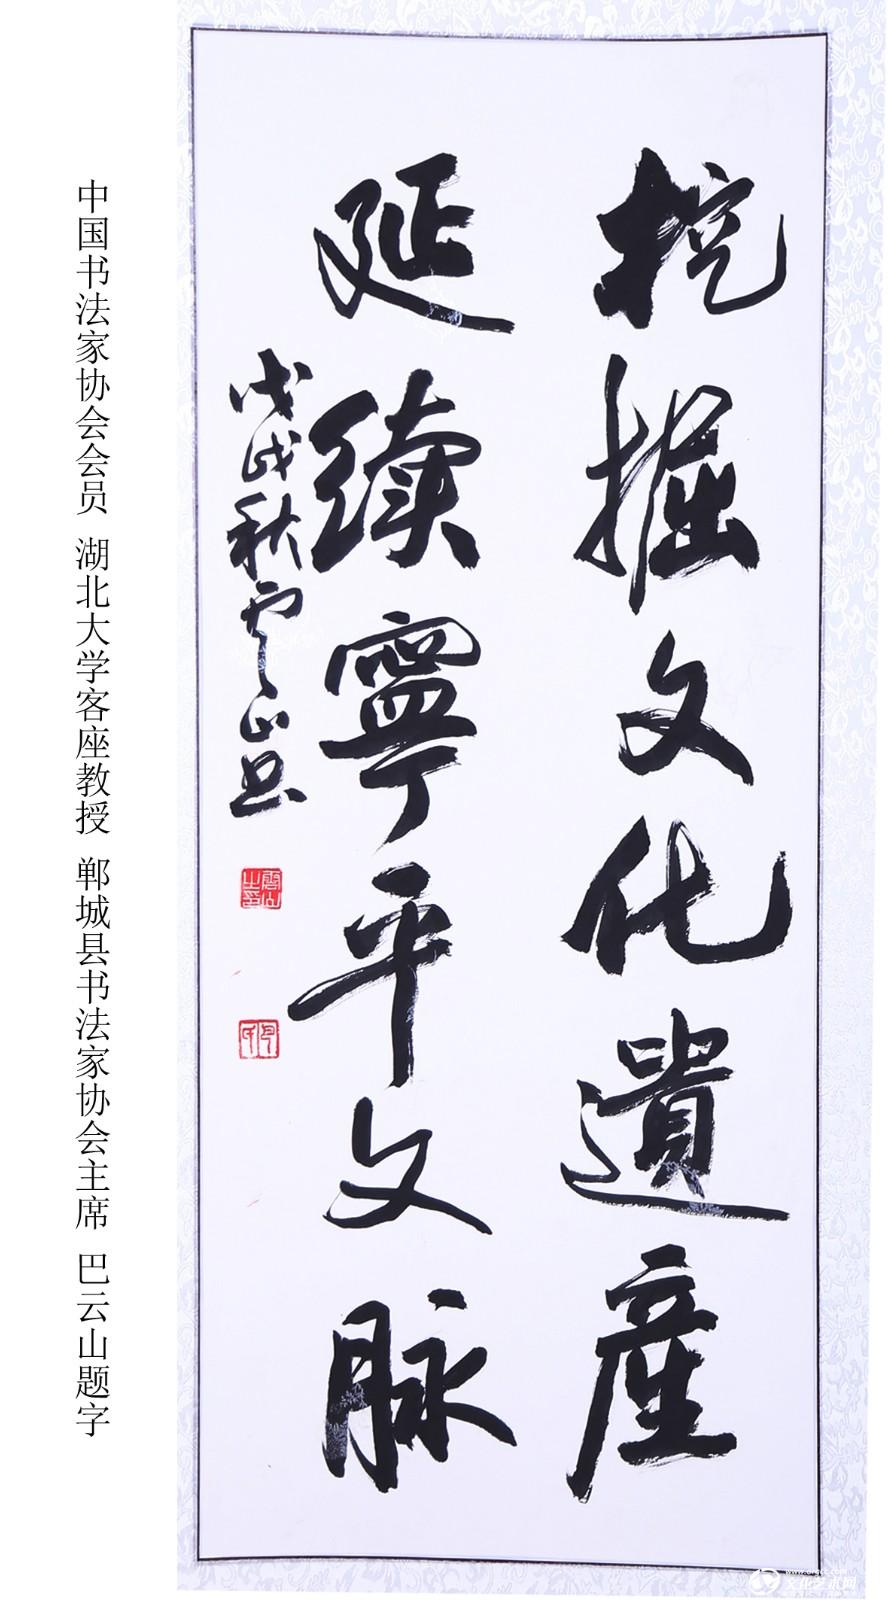 挖掘文化遺產
延續寧平文脉
戊戌秋雲山書
中国书法家协会会员 湖北大学客座教授 郸城县书法家协会主席 巴云山题字
文化艺术网